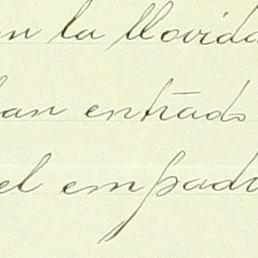 en la llovida
han entrado
el empadr